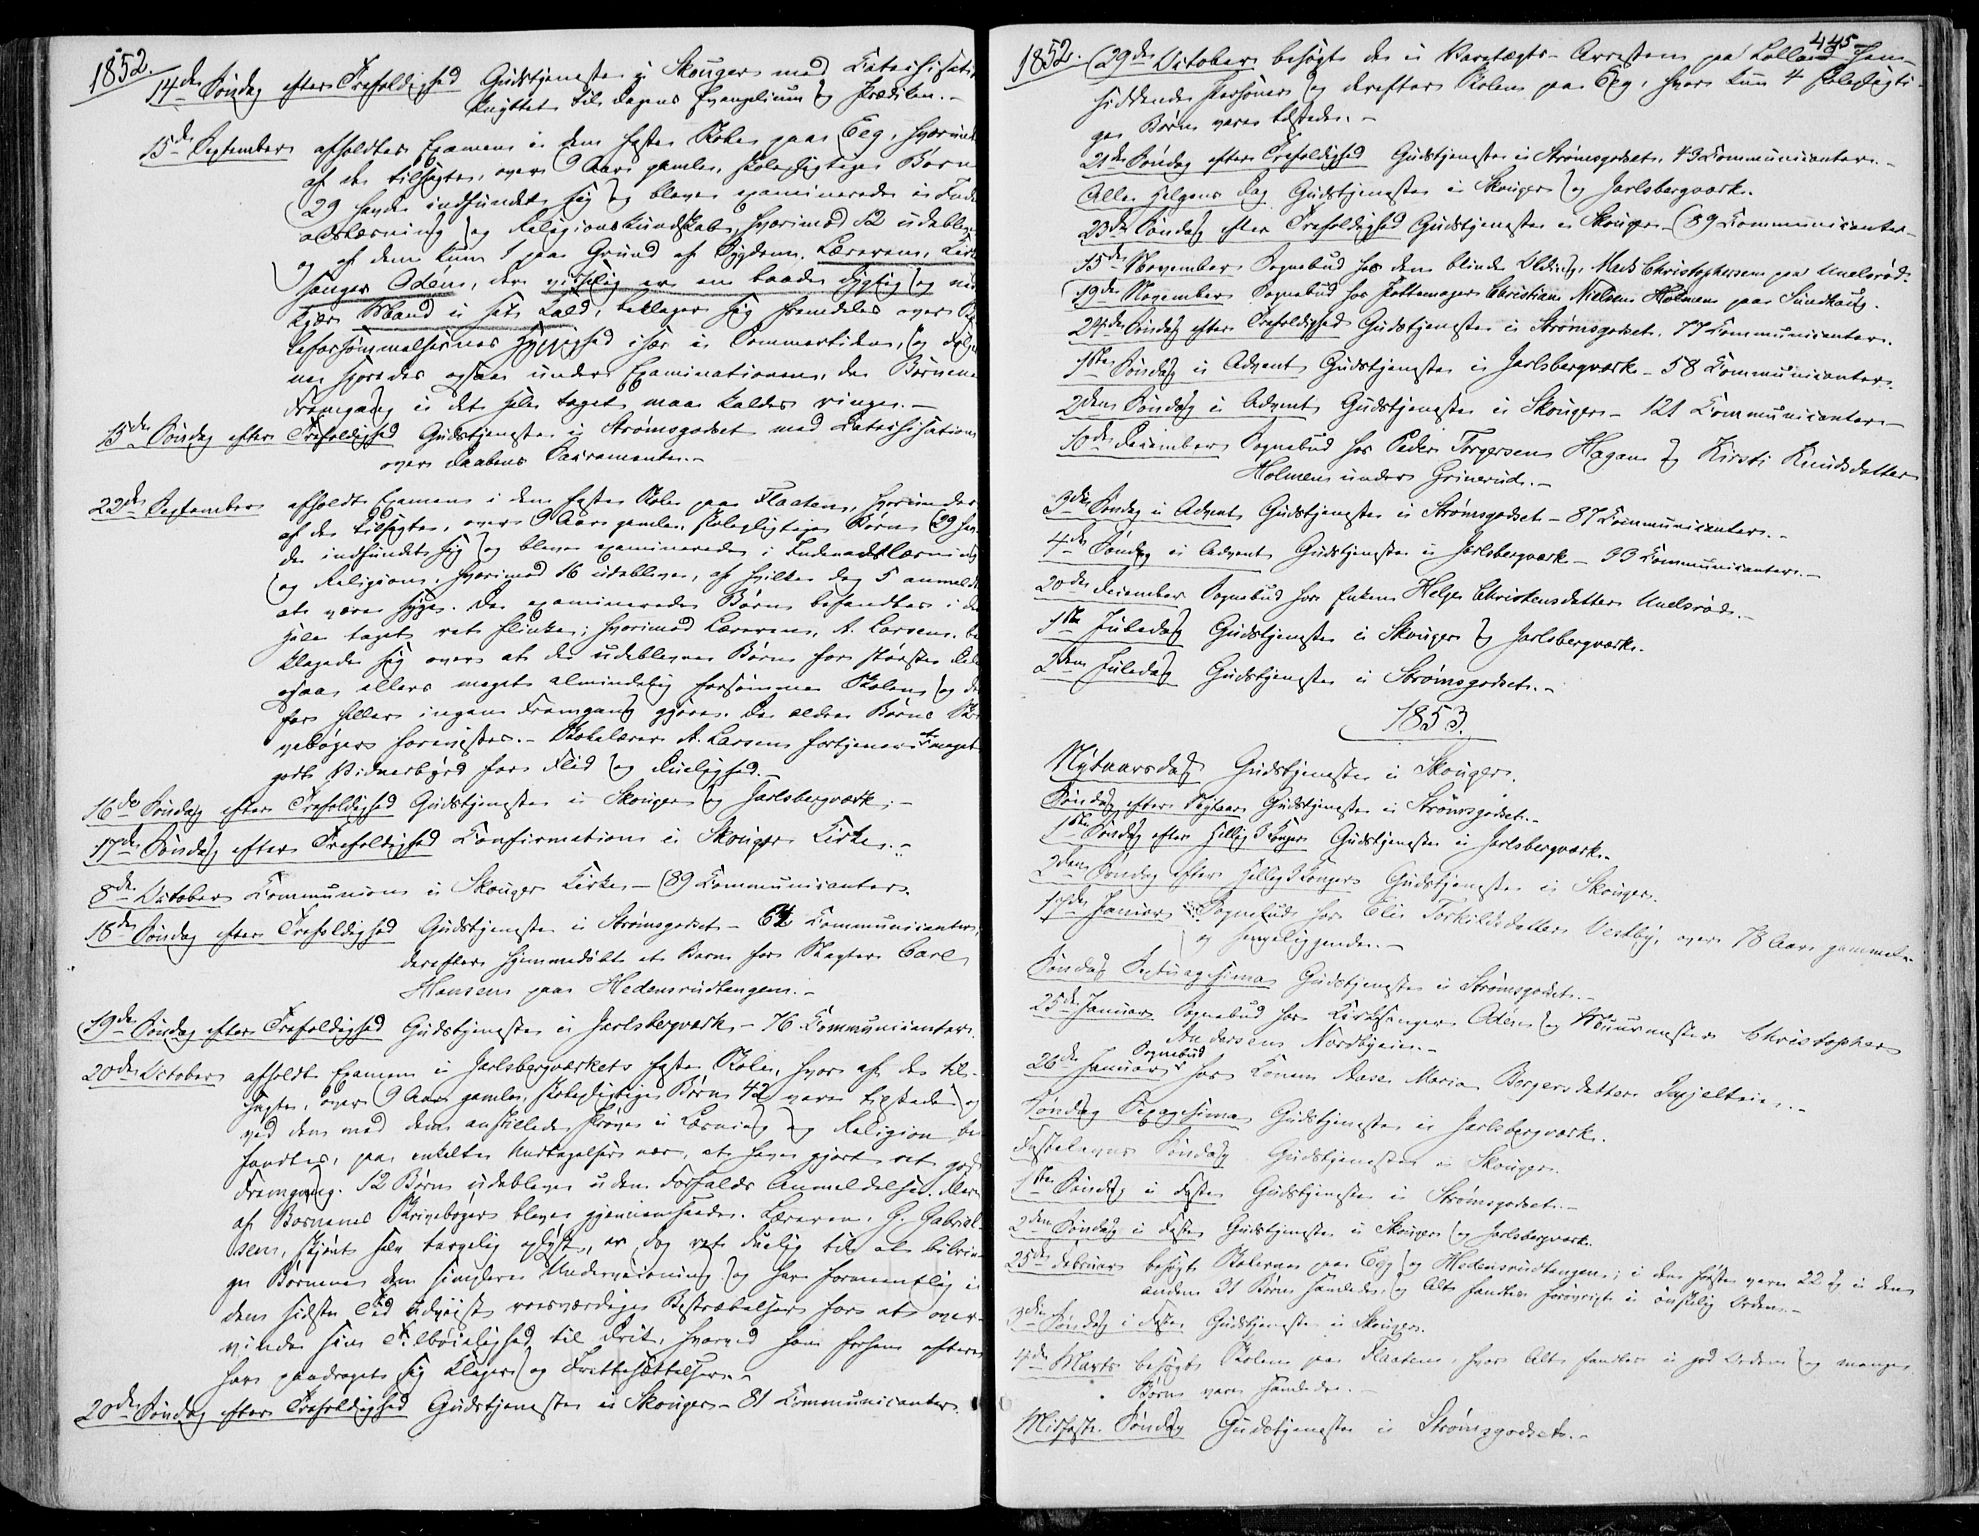 1852.
14de Søndag efter Trefoldighed Gudstjeneste i Skouger med Catechisation
knyttet til Dagens Evangelium og Prædiken.-
15de September afholdtes Examen i den faste Skole paa Eeg, hvorunder
af de tilsagte, over 9 Aar gamle, skolepligtige Børn
29 havde indfundet sig og bleve examinerede i Inde-
nadslæsning og Religionskundskab, hvorimod 12 udebleve
og af dem kun 1 paa Grund af Sygdom. Læreren, Kirke
sanger Odén, der virkelig er en baade dygtig og
Mand i sit Kald, beklager sig fremdeles over
leforsømmelsernes Hyppighed især i Sommertiden, og
ne spores ogsaa under Examinationen, da Børnenes
Fremgang i det hele taget maa kaldes ringe.-
15de Søndag efter Trefoldighed Gudstjeneste i Strømsgodset med Catechisation
over Daabens Sacramente.-
22de September afholdt Examen i den faste Skole paa Flaaten, hvorunder
af de tilsagte, over 9 Aar gamle, skolepligtige Børn 29 hav-
de indfundet sig og bleve examinerede i Indenadslæsning
og Religion, hvorimod 16 udebleve, af hvilke dog 5 anmeldt
at være syge. De examinerede Børn befandtes i det
hele taget ret flinke; hvorimod Læreren, A. Larsen, be-
klagede sig over at de udeblevne Børn for største Delen
ogsaa ellers meget almindelig forsømme Skolen og der-
for heller ingen Fremgang gjøre. De ældre Børns Skri-
vebøger forevistes.- Skolelærer A. Larsen fortjener et meget
godt Vidnesbyrd for Flid og Duelighed.-
16de Søndag efter Trefoldighed Gudstjeneste i Skouger og Jarlsbergværk.-
17de Søndag efter Trefoldighed Confirmation i Skouger Kirke.-
8de October Communion i Skouger Kirke - 89 Communicanter.
18de Søndag efter Trefoldighed Gudstjeneste i Strømsgodset - 64 Communicanter,
derefter hjemmedøbt et Barn hos Slagter Carl
Hansen paa Hedensrudtangen.-
19de Søndag efter Trefoldighed Gudstjeneste i Jarlsbergværk - 76 Communicanter.
20de October afholdt Examen i Jarlsbergværkets faste Skole, hvor af de til-
sagte, over 9 Aar gamle, skolepligtige Børn 42 vare tilstede og
ved den med dem anstillede Prøve i Læsning og Religion be-
fandtes, paa enkelte Undtagelser nær, at have gjort ret god
Fremgang. 12 Børn udebleve uden Forfalds Anmeldelse. Flere
af Børnenes Skrivebøger bleve gjennemseede. Læreren, G. Gabriel-
sen, skjønt selv tarvelig oplyst, er dog ret duelig til at bibrin-
ge Børnene den simplere Underviisning og har formentlig i
den sidste Tid udviist roesværdige Bestræbelser for at over-
vinde sin Tilbøielighed til Drik, hvorved han forhen oftere
har paadraget sig Klager og Irettesættelser.-
20de Søndag efter Trefoldighed Gudstjeneste i Skouger - 81 Communicanter.
445
1852. 29de October besøgt de i Varetægts-Arresten paa Lolland hen-
siddende Personer og derefter Skolen paa Eeg, hvor kun 4 skolepligti-
ge Børn vare tilstede.-
21de Søndag efter Trefoldighed Gudstjeneste i Strømsgodset, 43 Communicanter.-
Alle Helgens Dag Gudstjeneste i Skouger og Jarlsbergværk.
23de Søndag efter Trefoldighed Gudstjeneste i Skouger - 89 Communicanter.-
15de November Sognebud hos den blinde Olding, Mads Christophersen paa Unelsrød.
19de November Sognebud hos Pottemager Christian Nielsen Holmen paa Sundhaug.
24de Søndag efter Trefoldighed Gudstjeneste i Strømsgodset. 77 Communicanter.
1ste Søndag i Advent Gudstjeneste i Jarlsbergværk - 58 Communicanter.
2den Søndag i Advent Gudstjeneste i Skouger - 121 Communicanter.-
10de December Sognebud hos Peder Torgersen Hagan og Kirsti Knudsdatter
Holmen under Grinerud.-
3die Søndag i Advent Gudstjeneste i Strømsgodset - 87 Communicanter.-
4de Søndag i Advent Gudstjeneste i Jarlsbergværk - 33 Communicanter.-
20de December Sognebud hos Enken Helge Christensdatter Unelsrød.-
1ste Juledag Gudstjeneste i Skouger og Jarlsbergværk.
2den Juledag Gudstjeneste i Strømsgodset.-
1853.
Nytaarsdag Gudstjeneste i Skouger.
Søndag efter Nytaar Gudstjeneste i Strømsgodset.-
1ste Søndag efter Hellig 3 Konger Gudstjeneste i Jarlsbergværk.
2den Søndag efter Hellig 3 Konger Gudstjeneste i Skouger.
17de Januar Sognebud hos Elie Torkildsdatter Vestby, over 78 Aar gammel
og sengeliggende.-
Søndag Septuagesima Gudstjeneste i Strømsgodset.-
25de Januar Sognebud hos Kirkesanger Odén og Muurmester Christopher
Andersen Nordbyeie.-
26de Januar Sognebud hos Konen Aase Maria Borgersdatter Injelteie.-
Søndag Sexagesima Gudstjeneste i Jarlsbergværk.
Fastelavns Søndag Gudstjeneste i Skouger.
1ste Søndag i Faste Gudstjeneste i Strømsgodset.-
2den Søndag i Faste Gudstjeneste i Skouger og Jarlsbergværk.
25de Februar besøgt Skolerne paa Eeg og Hedensrudtangen; i den første vare 22 og i den
anden 31 Børn samlede, og Alt fandtes forøvrigt i ønskelig Orden.-
3die Søndag i Faste Gudstjeneste i Skouger.
4de Marts besøgt Skolen paa Flaaten, hvor Alt fandtes i god Orden og mange
Børn vare samlede.-
Midfaste Søndag Gudstjeneste i Strømsgodset.-